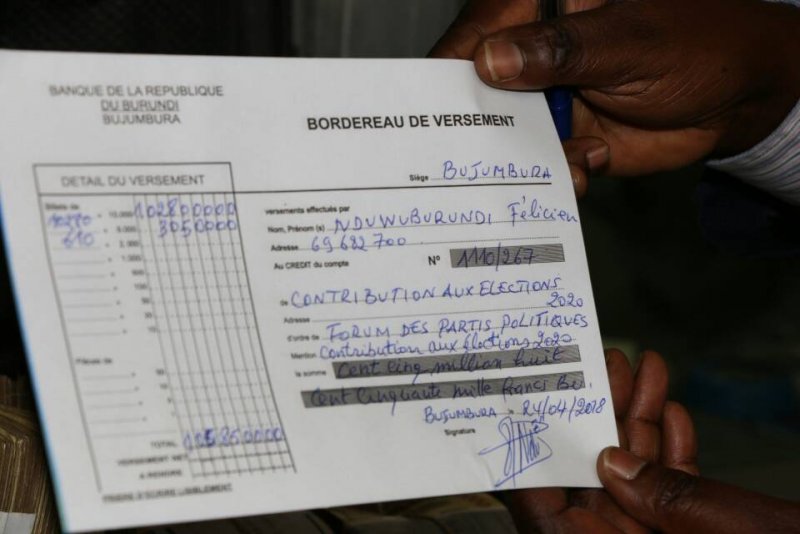 BANQUE DE LA REPUBLIQUE
DU BURUNDI
BUJUMBURA
BORDEREAU DE VERSEMENT
Siège BUJUMBURA
DETAIL DU VERSEMENT
Billets de
10280 x 10.000 102800000
610 x 5.000 3050000
2.000
1.000
500
100
50
20
10
Pièces de
10
5
1
TOTAL 105850000
VERSEMENT NET
A RENDRE
PRIERE D'ECRIRE LISIBLEMENT
versements effectués par
Nom, Prénom (s) NDUWUBURUNDI Félicien
Adresse 69682700
Au CREDIT du compte N° 1110/267
de CONTRIBUTION AUX ELECTIONS
2020
Adresse
d'ordre de FORUM DES PARTIS POLITIQUES
Mention Contribution aux élections 2020
la somme Cent cinq million huit
Cent cinquante mille francs Bu.
BUJUMBURA, 24/04/2018
Signature